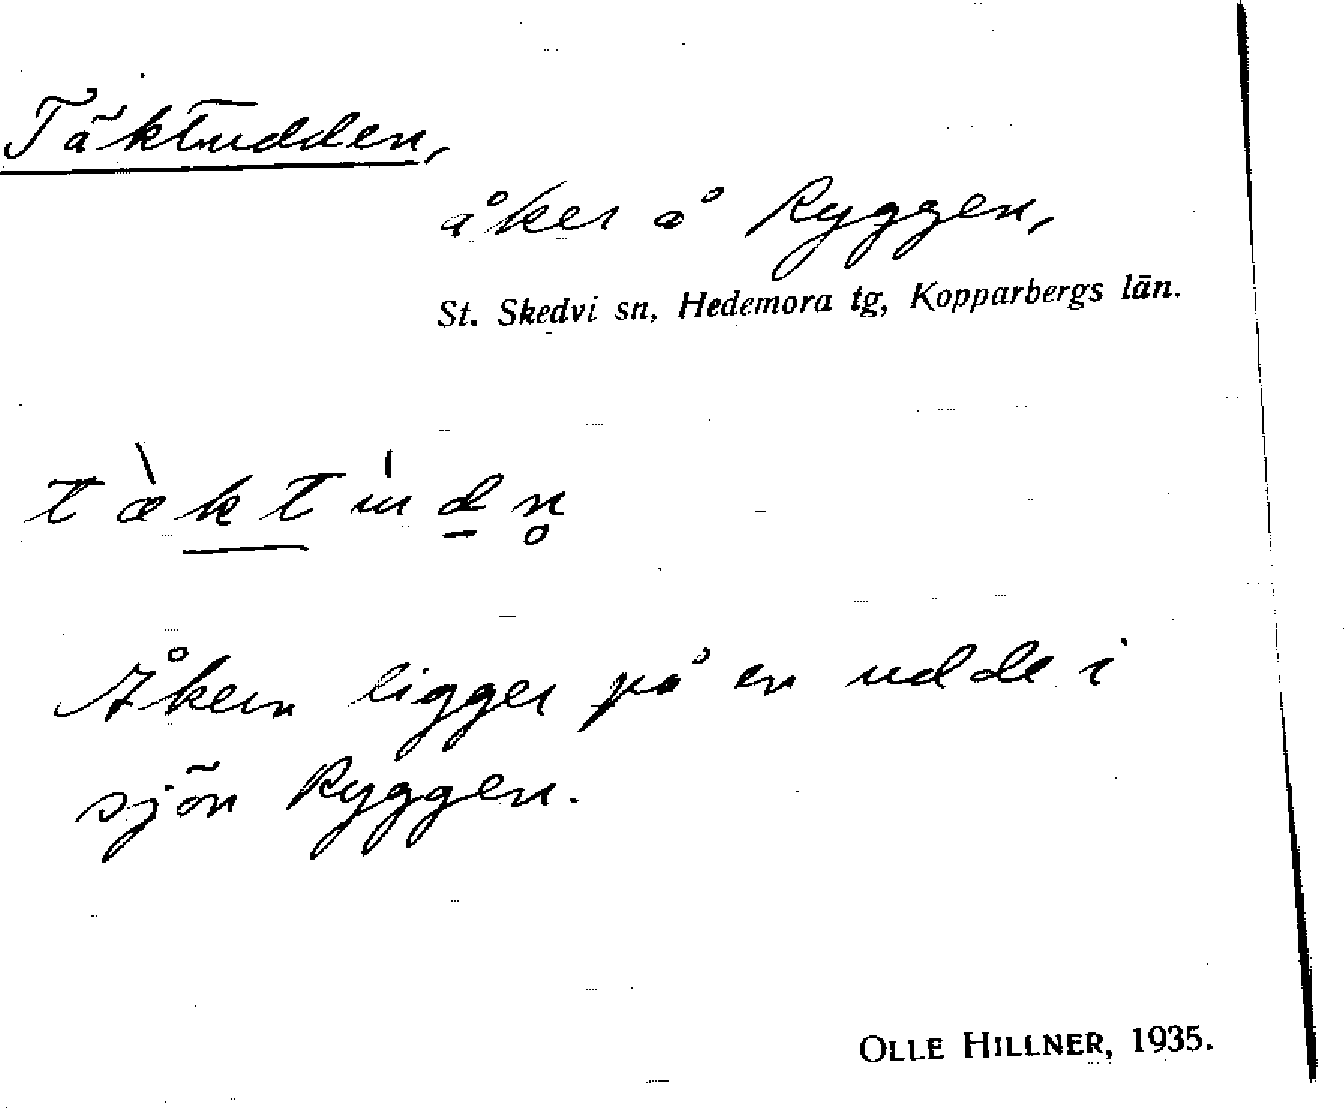 Täktudden,
åker å Ryggen,
St. Skedvi sn, Hedemora tg, Kopparbergs län.
tæ̀ktu̍dn̥
Åkern ligger på en udde i
sjön Ryggen.
OLLE HILLNER, 1935.